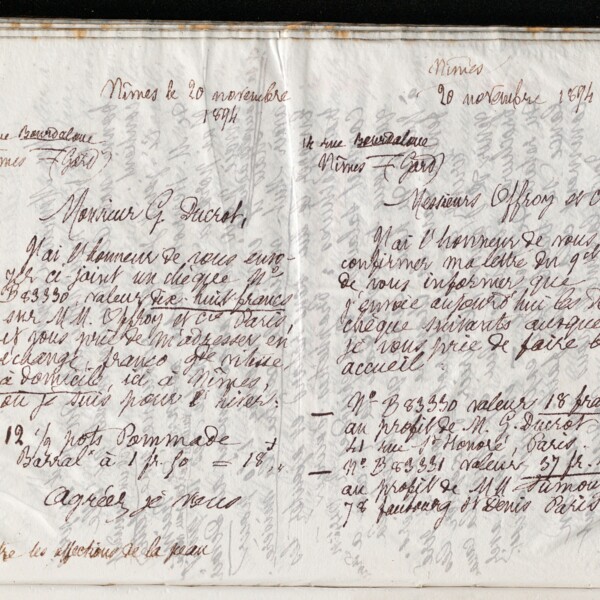 Nîmes le 20 novembre
1894
rue Bourdaloue
Nîmes (Gard)
Monsieur G. Ducrot,
J'ai l'honneur de vous envo-
yer ci joint un chèque No
B 83330 valeur dix-huit francs
sur M M. Offroy et Cie Paris,
et vous prie de m'adresser en
échange, franco
à domicile, ici à Nîmes,
où je suis pour l'hiver:
12 1/2 pots Pommade
Barral à 1 fr. 50 = 18 f
Agréez je vous
les affections de la peau
Nîmes
20 novembre 1894
14 rue Bourdaloue
Nîmes (Gard)
Messieurs Offroy et C
J'ai l'honneur de vous
confirmer ma lettre du 9
de vous informer que
j'envoie aujourd'hui les
chèque suivants auxquels
je vous prie de faire b
accueil.
— No B 83330 valeur 18 fra
au profit de M. G. Ducrot
41 rue St Honoré, Paris.
— No B 83331 valeur 37 fr.
au profit de MM.
78 faubourg St Denis Paris